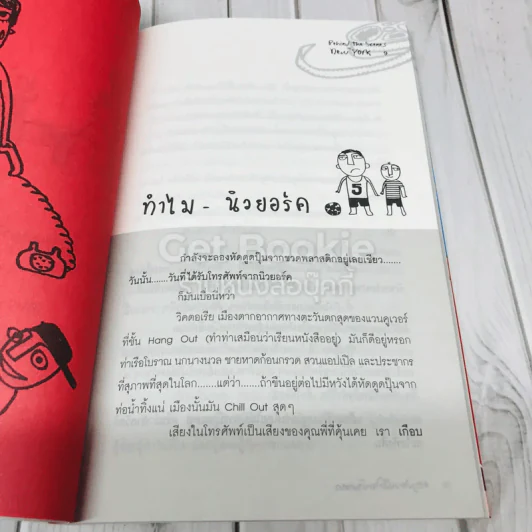 Behind The Scenes
New York 9
ทำไม - นิวยอร์ค
5
Get Bookie
ร้านหนังสือบุ๊คกี้
กำลังจะลองหัดดูดปุ๊นจากขวดพลาสติกอยู่เลยเชียว.......
วันนั้น......วันที่ได้รับโทรศัพท์จากนิวยอร์ค
ก็มันเบื่อนี่หว่า
วิคตอเรีย เมืองตากอากาศทางตะวันตกสุดของแวนคูเวอร์
ที่ขึ้น Hang Out (ทำท่าเสมือนว่าเรียนหนังสืออยู่) มันก็ดีอยู่หรอก
ท่าเรือโบราณ นกนางนวล ชายหาดก้อนกรวด สวนแอปเปิล และประชากร
ที่สุภาพที่สุดในโลก.......แต่ว่า......ถ้าขืนอยู่ต่อไปมีหวังได้หัดดูดปุ๊นจาก
ท่อน้ำทิ้งแน่ เมืองนั้นมัน Chill Out สุดๆ
เสียงในโทรศัพท์เป็นเสียงของคุณพี่ที่คุ้นเคย เรา เกือบ